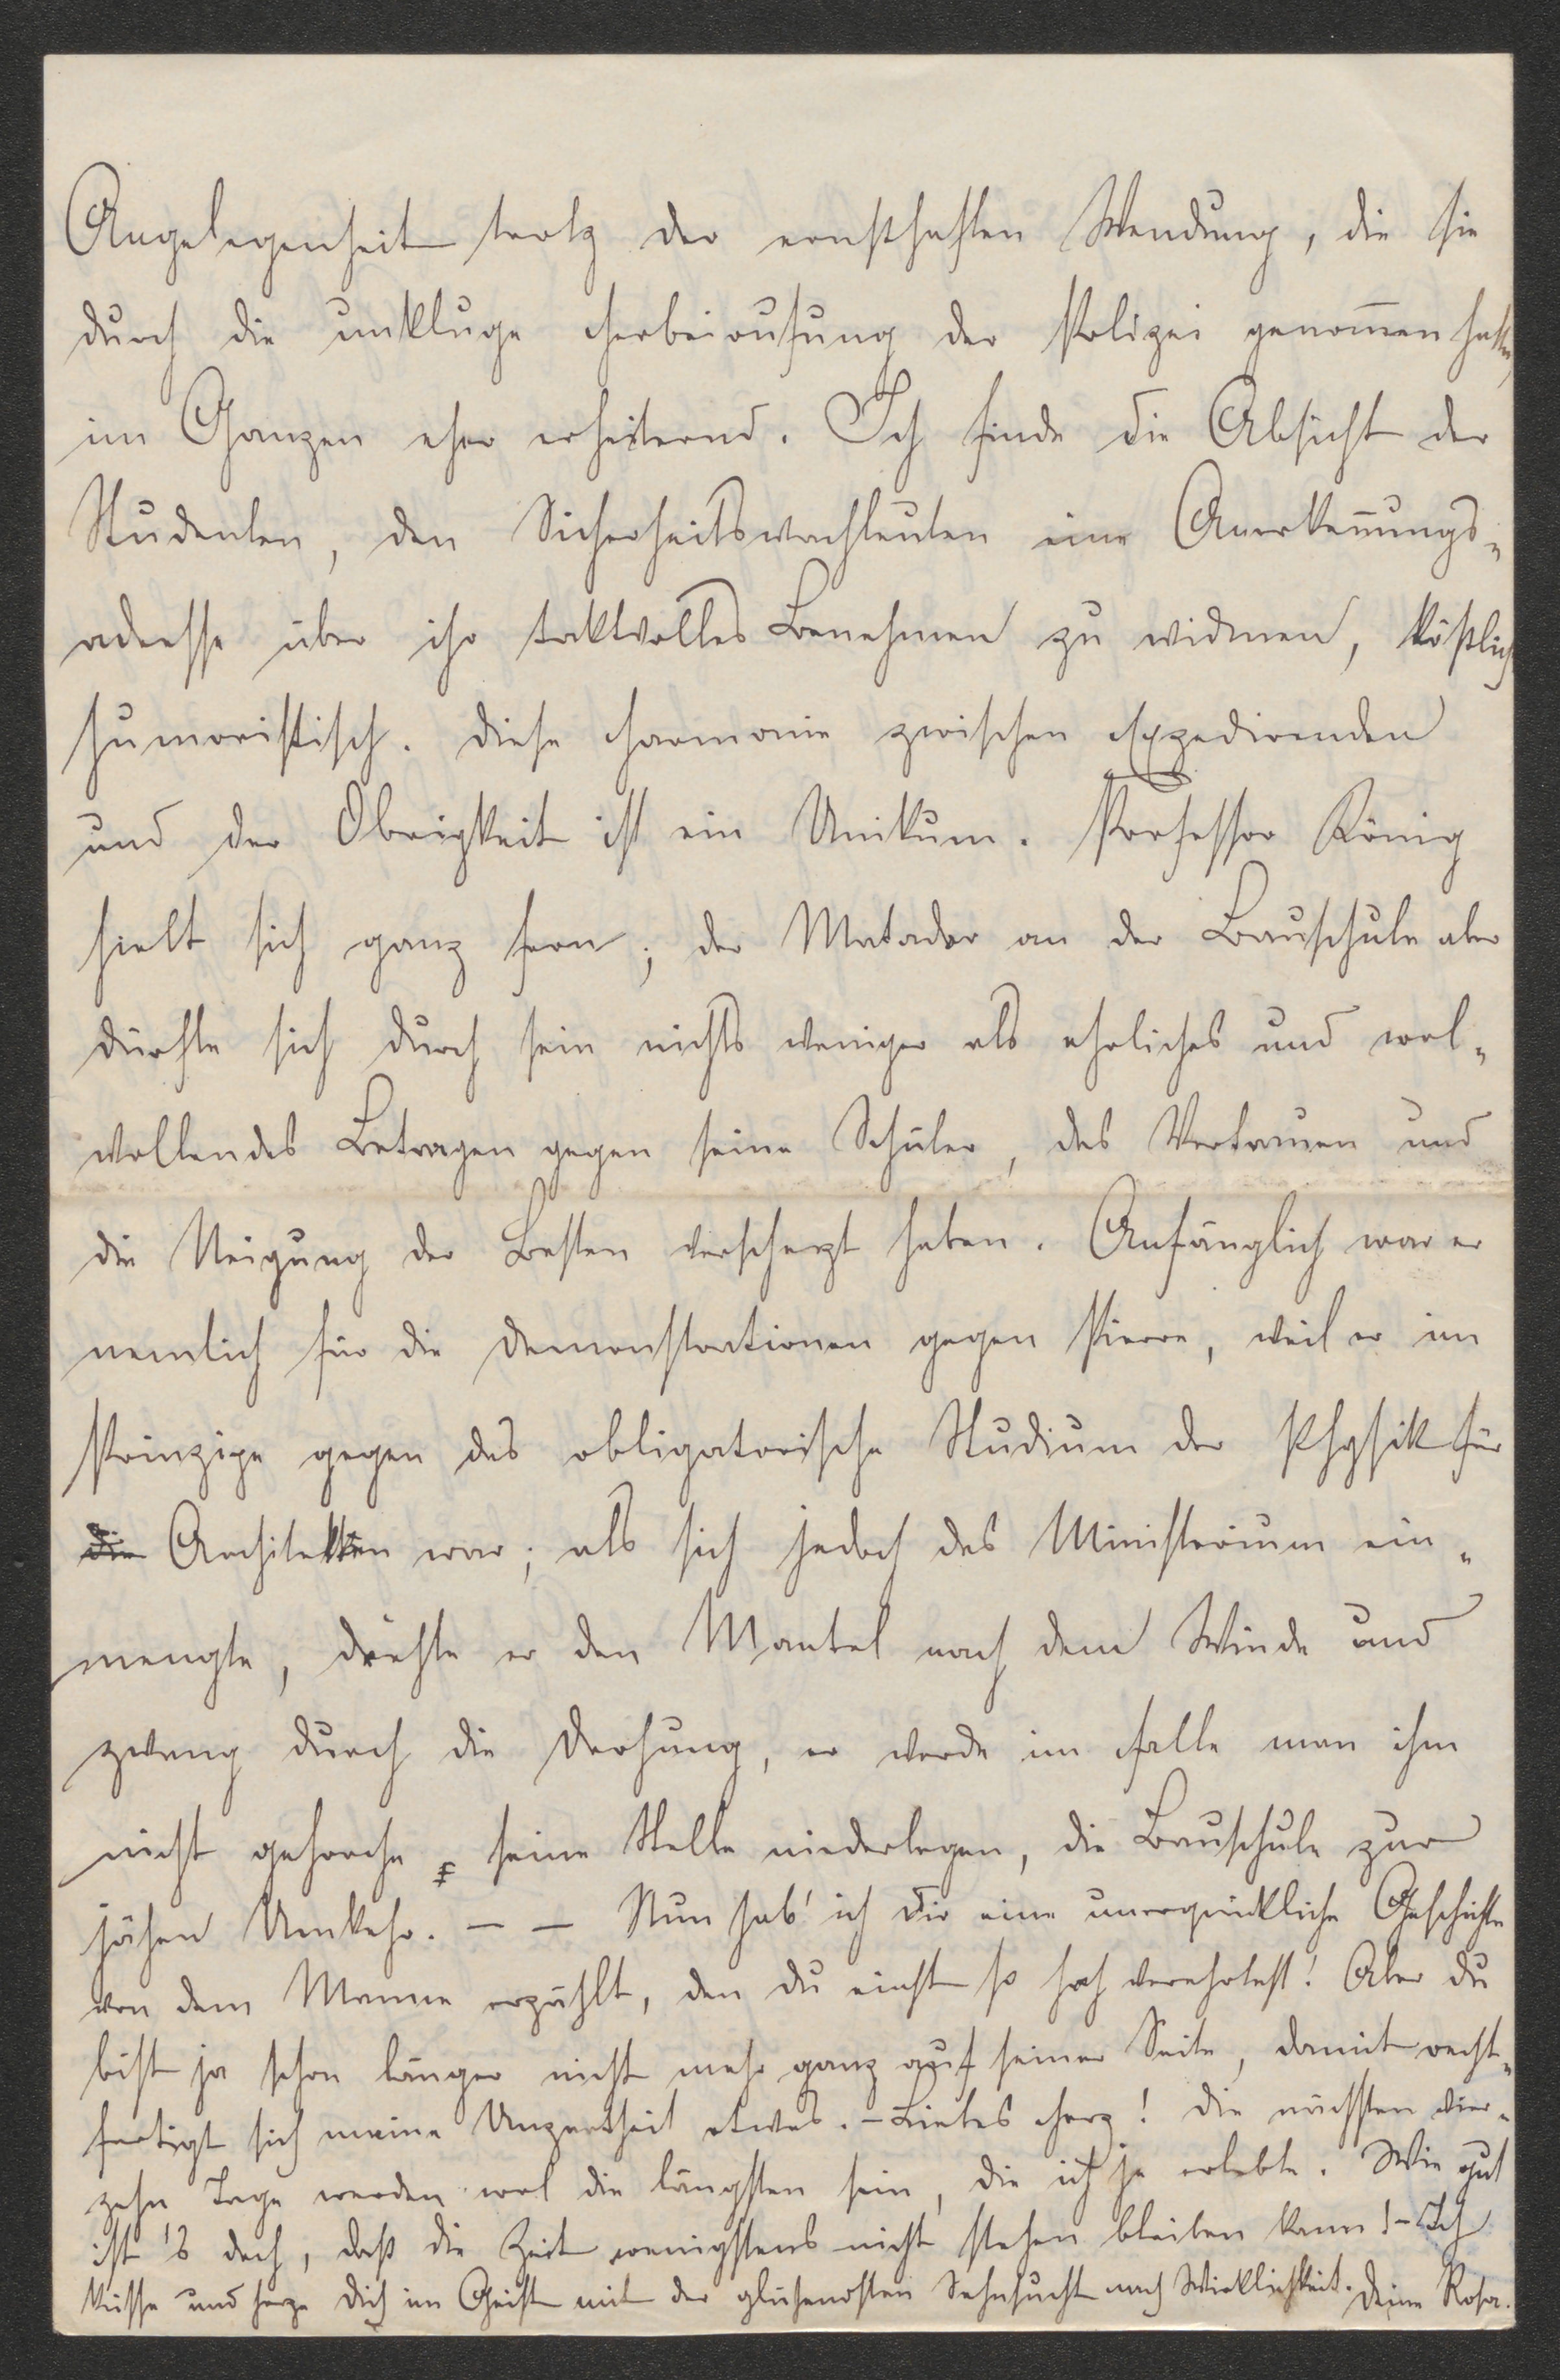 Angelegenheit trotz der ernsthaften Wendung, die sie
durch die unkluge Herbeirufung der Polizei genom̅en hatte,
im Ganzen eher erheiternd. Ich finde die Absicht der
Studenten, den Sicherheitswachleuten eine Anerken̅ungs-
adresse über ihr taktvolles Benehmen zu widmen, köstlich
humoristisch. Diese Harmonie zwischen Expedirenden
und der Obrigkeit ist ein Unikum. Professor König
hielt sich ganz fern; der Matador an der Bauschule aber
dürfte sich durch sein nichts weniger als ehrliches und wol-
wollendes Betragen gegen seine Schüler, das Vertrauen und
die Neigung der Besten verscherzt haben. Anfänglich war er
nemlich für die Demonstrationen gegen Pierre, weil er im
Prinzipe gegen das obligatorische Studium der Physik für
die Architekten war; als sich jedoch das Ministerium ein-
mengte, drehte er den Mantel nach dem Winde und
zwang durch die Drohung, er werde im Falle man ihm
nicht gehorche, seine Stelle niederlegen, die Bauschule zur
jähen Umkehr. — — Nun hab' ich Dir eine unerquickliche Geschichte
von dem Manne erzählt, den Du einst so hoch verehrtest! Aber Du
bist ja schon länger nicht mehr ganz auf seiner Seite, damit recht-
fertigt sich meine Unzartheit etwas. – Liebes Herz! Die nächsten vier-
zehn Tage werden wol die längsten sein, die ich je erlebte. Wie gut
ist's doch, daß die Zeit wenigstens nicht stehen bleiben kann! – Ich
küsse und herze Dich im Geist mit der glühendsten Sehnsucht nach Wirklichkeit. Deine Rosa.